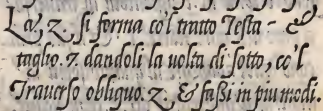 La, z, si forma co'l tratto Testa - &
taglio. z. dandoli la uolta di sotto, co 'l
Trauerso obliquo. z. & fassi in piu modi.